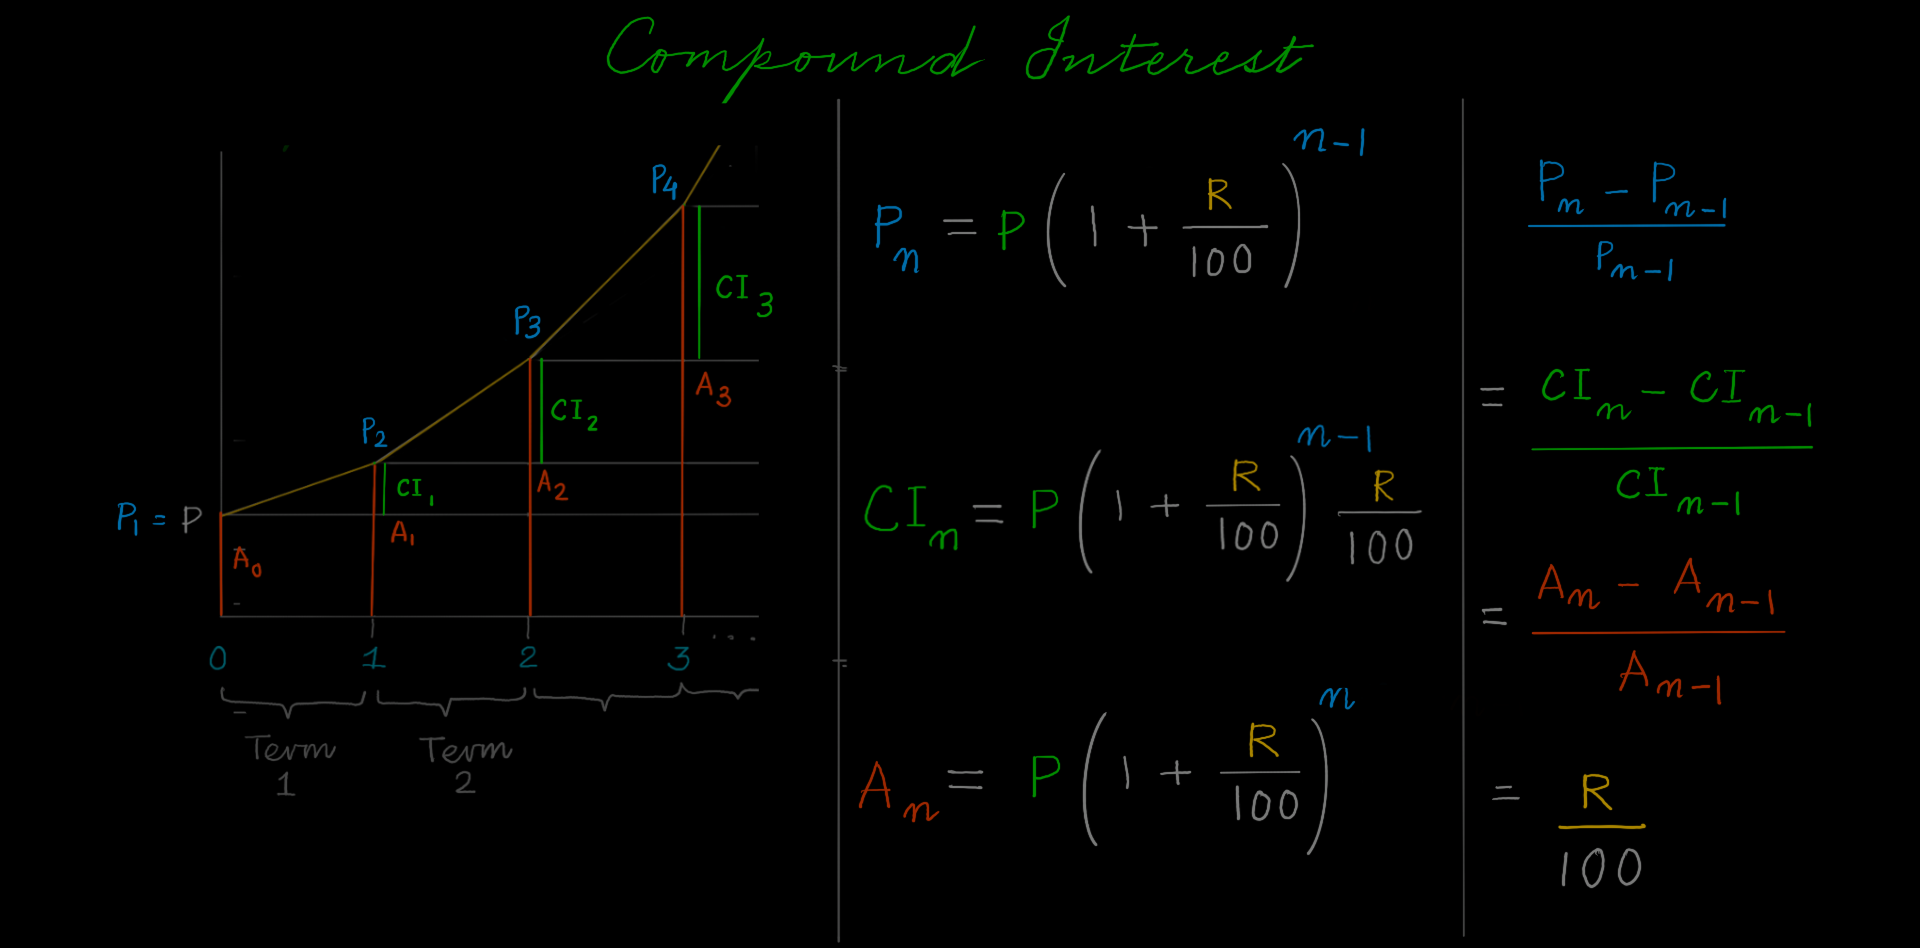 Compound Interest
P₄
CI₃
P₃
A₃
P₂
CI₂
CI₁
A₂
P₁ = P
A₁
A₀
0 1 2 3 ....
Term 1
Term 2
Pₙ = P (1 + R/100)ⁿ⁻¹
CIₙ = P (1 + R/100)ⁿ⁻¹ R/100
Aₙ = P (1 + R/100)ⁿ
Pₙ - Pₙ₋₁
Pₙ₋₁
= CIₙ - CIₙ₋₁
CIₙ₋₁
= Aₙ - Aₙ₋₁
Aₙ₋₁
= R
100